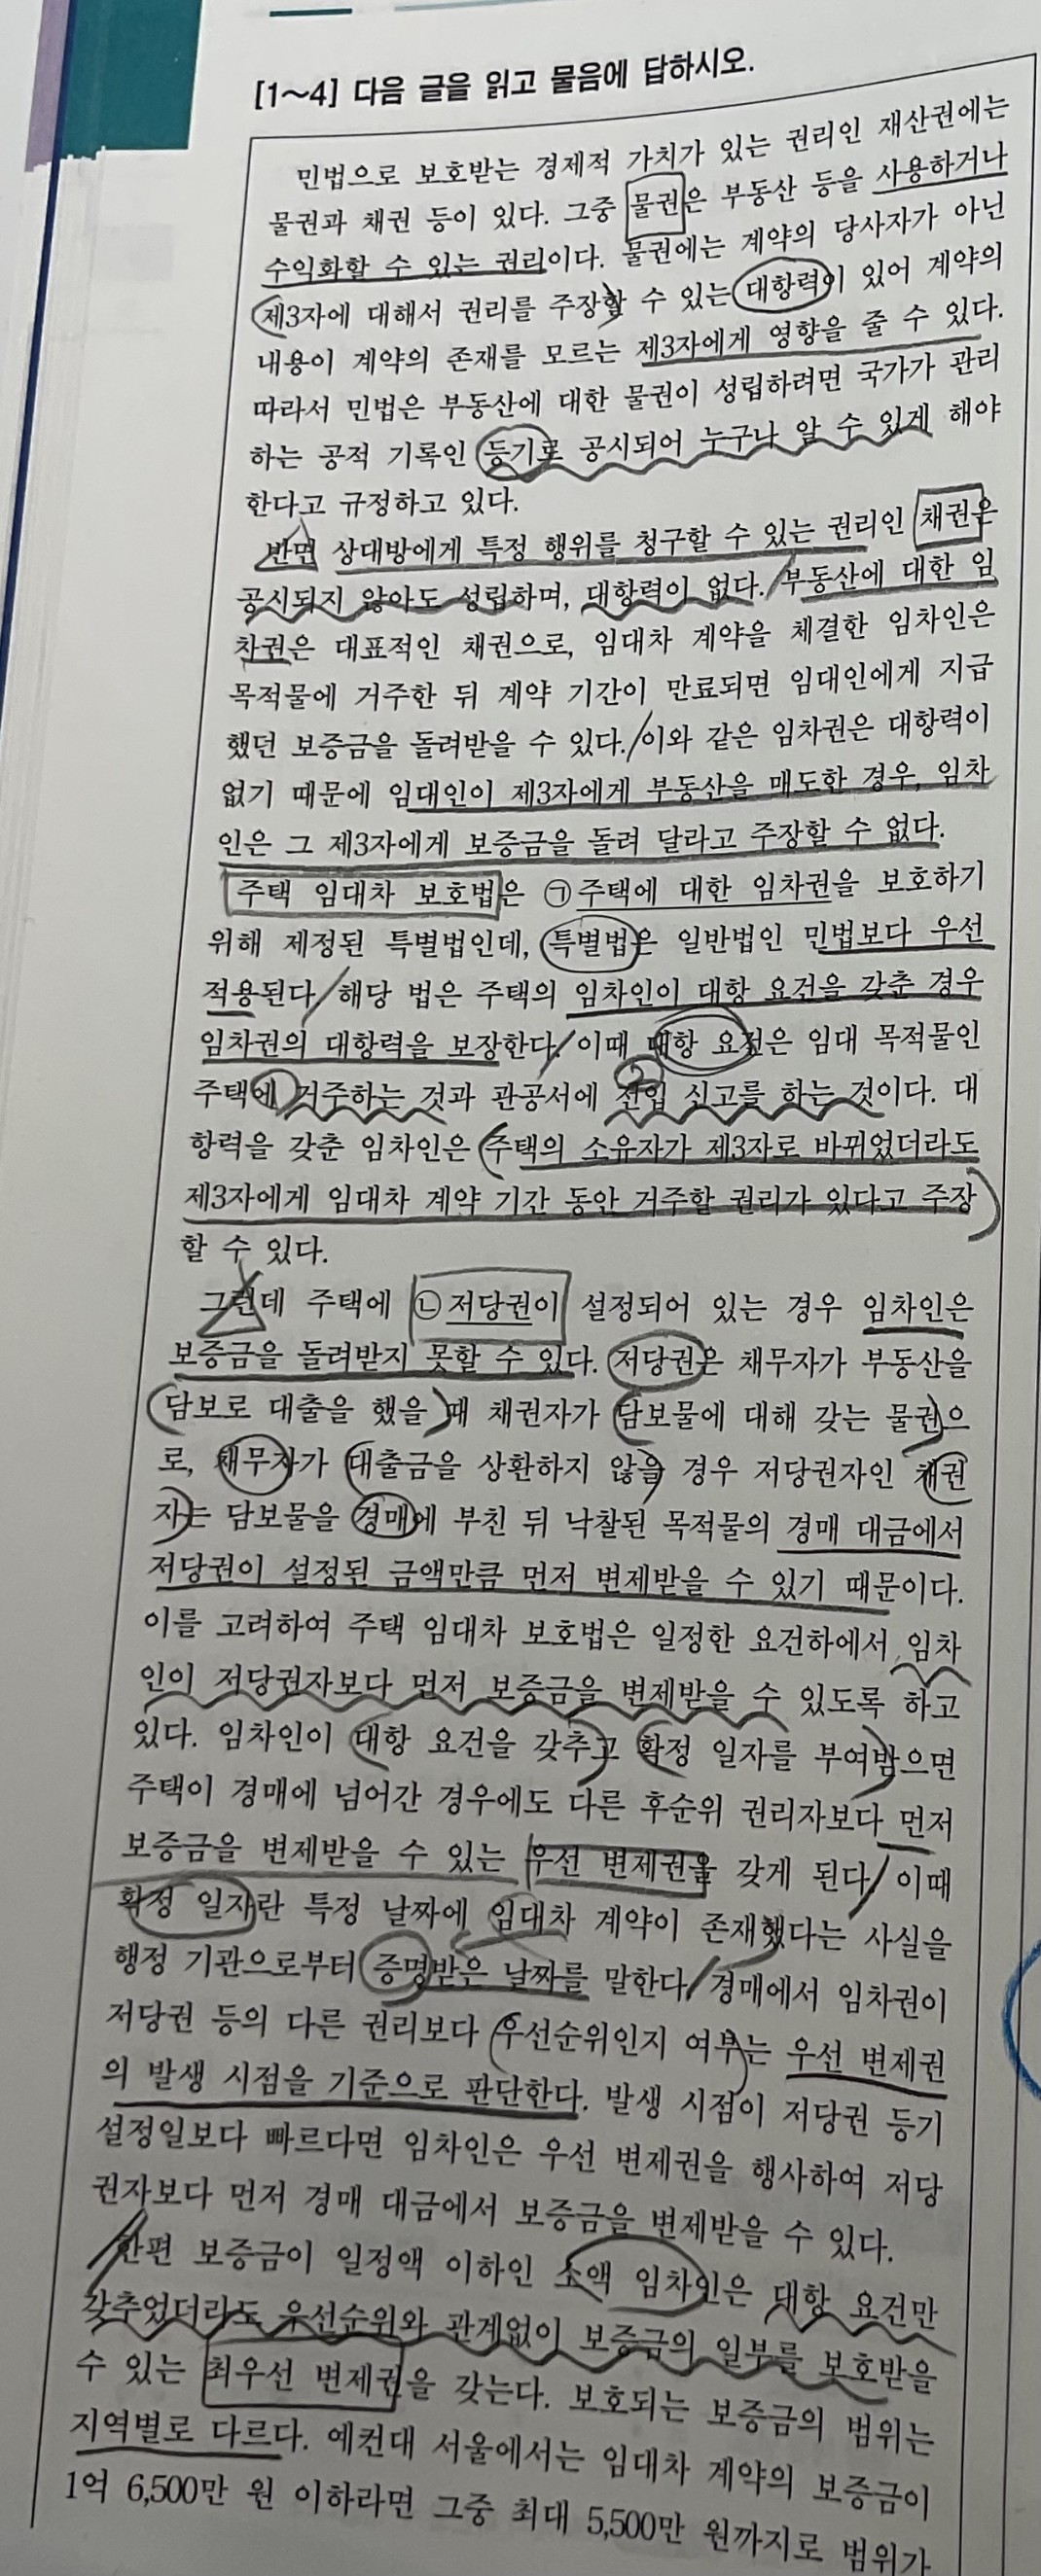 [1~4] 다음 글을 읽고 물음에 답하시오.
민법으로 보호받는 경제적 가치가 있는 권리인 재산권에는
물권과 채권 등이 있다. 그중 물권은 부동산 등을 사용하거나
수익화할 수 있는 권리이다. 물권에는 계약의 당사자가 아닌
제3자에 대해서 권리를 주장할 수 있는 대항력이 있어 계약의
내용이 계약의 존재를 모르는 제3자에게 영향을 줄 수 있다.
따라서 민법은 부동산에 대한 물권이 성립하려면 국가가 관리
하는 공적 기록인 등기로 공시되어 누구나 알 수 있게 해야
한다고 규정하고 있다.
반면 상대방에게 특정 행위를 청구할 수 있는 권리인 채권은
공시되지 않아도 성립하며, 대항력이 없다. 부동산에 대한 임
차권은 대표적인 채권으로, 임대차 계약을 체결한 임차인은
목적물에 거주한 뒤 계약 기간이 만료되면 임대인에게 지급
했던 보증금을 돌려받을 수 있다. 이와 같은 임차권은 대항력이
없기 때문에 임대인이 제3자에게 부동산을 매도한 경우, 임차
인은 그 제3자에게 보증금을 돌려 달라고 주장할 수 없다.
주택 임대차 보호법은 ㉠주택에 대한 임차권을 보호하기
위해 제정된 특별법인데, 특별법은 일반법인 민법보다 우선
적용된다. 해당 법은 주택의 임차인이 대항 요건을 갖춘 경우
임차권의 대항력을 보장한다. 이때 대항 요건은 임대 목적물인
주택에 거주하는 것과 관공서에 전입 신고를 하는 것이다. 대
항력을 갖춘 임차인은 주택의 소유자가 제3자로 바뀌었더라도
제3자에게 임대차 계약 기간 동안 거주할 권리가 있다고 주장
할 수 있다.
그런데 주택에 ㉡저당권이 설정되어 있는 경우 임차인은
보증금을 돌려받지 못할 수 있다. 저당권은 채무자가 부동산을
담보로 대출을 했을 때 채권자가 담보물에 대해 갖는 물권으
로, 채무자가 대출금을 상환하지 않을 경우 저당권자인 채권
자는 담보물을 경매에 부친 뒤 낙찰된 목적물의 경매 대금에서
저당권이 설정된 금액만큼 먼저 변제받을 수 있기 때문이다.
이를 고려하여 주택 임대차 보호법은 일정한 요건하에서 임차
인이 저당권자보다 먼저 보증금을 변제받을 수 있도록 하고
있다. 임차인이 대항 요건을 갖추고 확정 일자를 부여받으면
주택이 경매에 넘어간 경우에도 다른 후순위 권리자보다 먼저
보증금을 변제받을 수 있는 우선 변제권을 갖게 된다. 이때
확정 일자란 특정 날짜에 임대차 계약이 존재했다는 사실을
행정 기관으로부터 증명받은 날짜를 말한다. 경매에서 임차권이
저당권 등의 다른 권리보다 우선순위인지 여부는 우선 변제권
의 발생 시점을 기준으로 판단한다. 발생 시점이 저당권 등기
설정일보다 빠르다면 임차인은 우선 변제권을 행사하여 저당
권자보다 먼저 경매 대금에서 보증금을 변제받을 수 있다.
한편 보증금이 일정액 이하인 소액 임차인은 대항 요건만
갖추었더라도 우선순위와 관계없이 보증금의 일부를 보호받을
수 있는 최우선 변제권을 갖는다. 보호되는 보증금의 범위는
지역별로 다르다. 예컨대 서울에서는 임대차 계약의 보증금이
1억 6,500만 원 이하라면 그중 최대 5,500만 원까지로 범위가